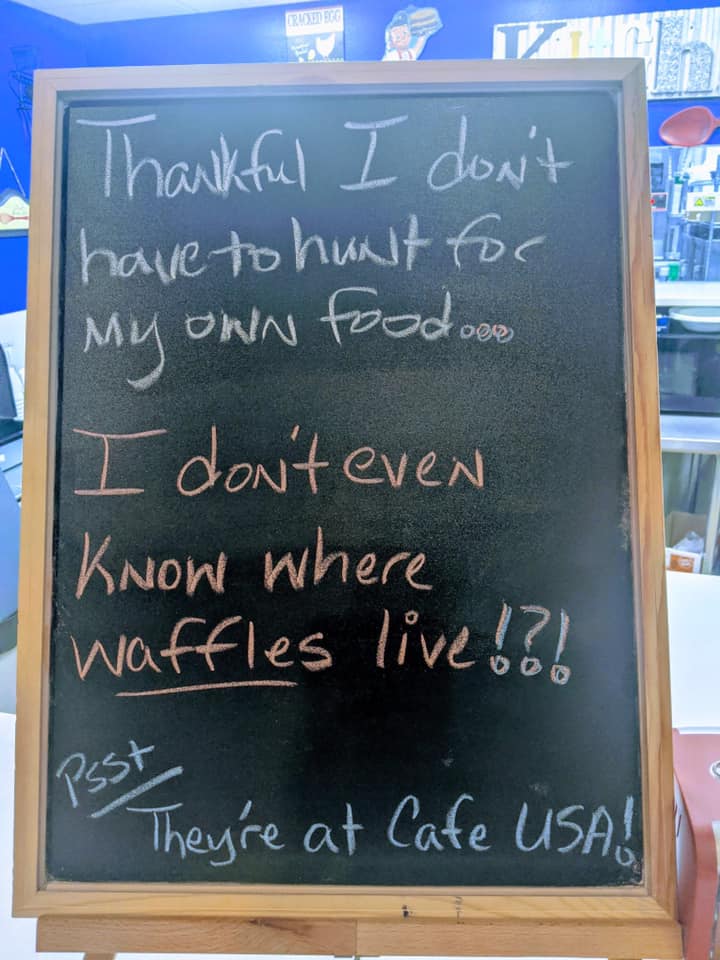 CRACKED EGG
Kitch
Thankful I don't
have to hunt for
my own food...
I don't even
know where
waffles live!?!
Psst
They're at Cafe USA!